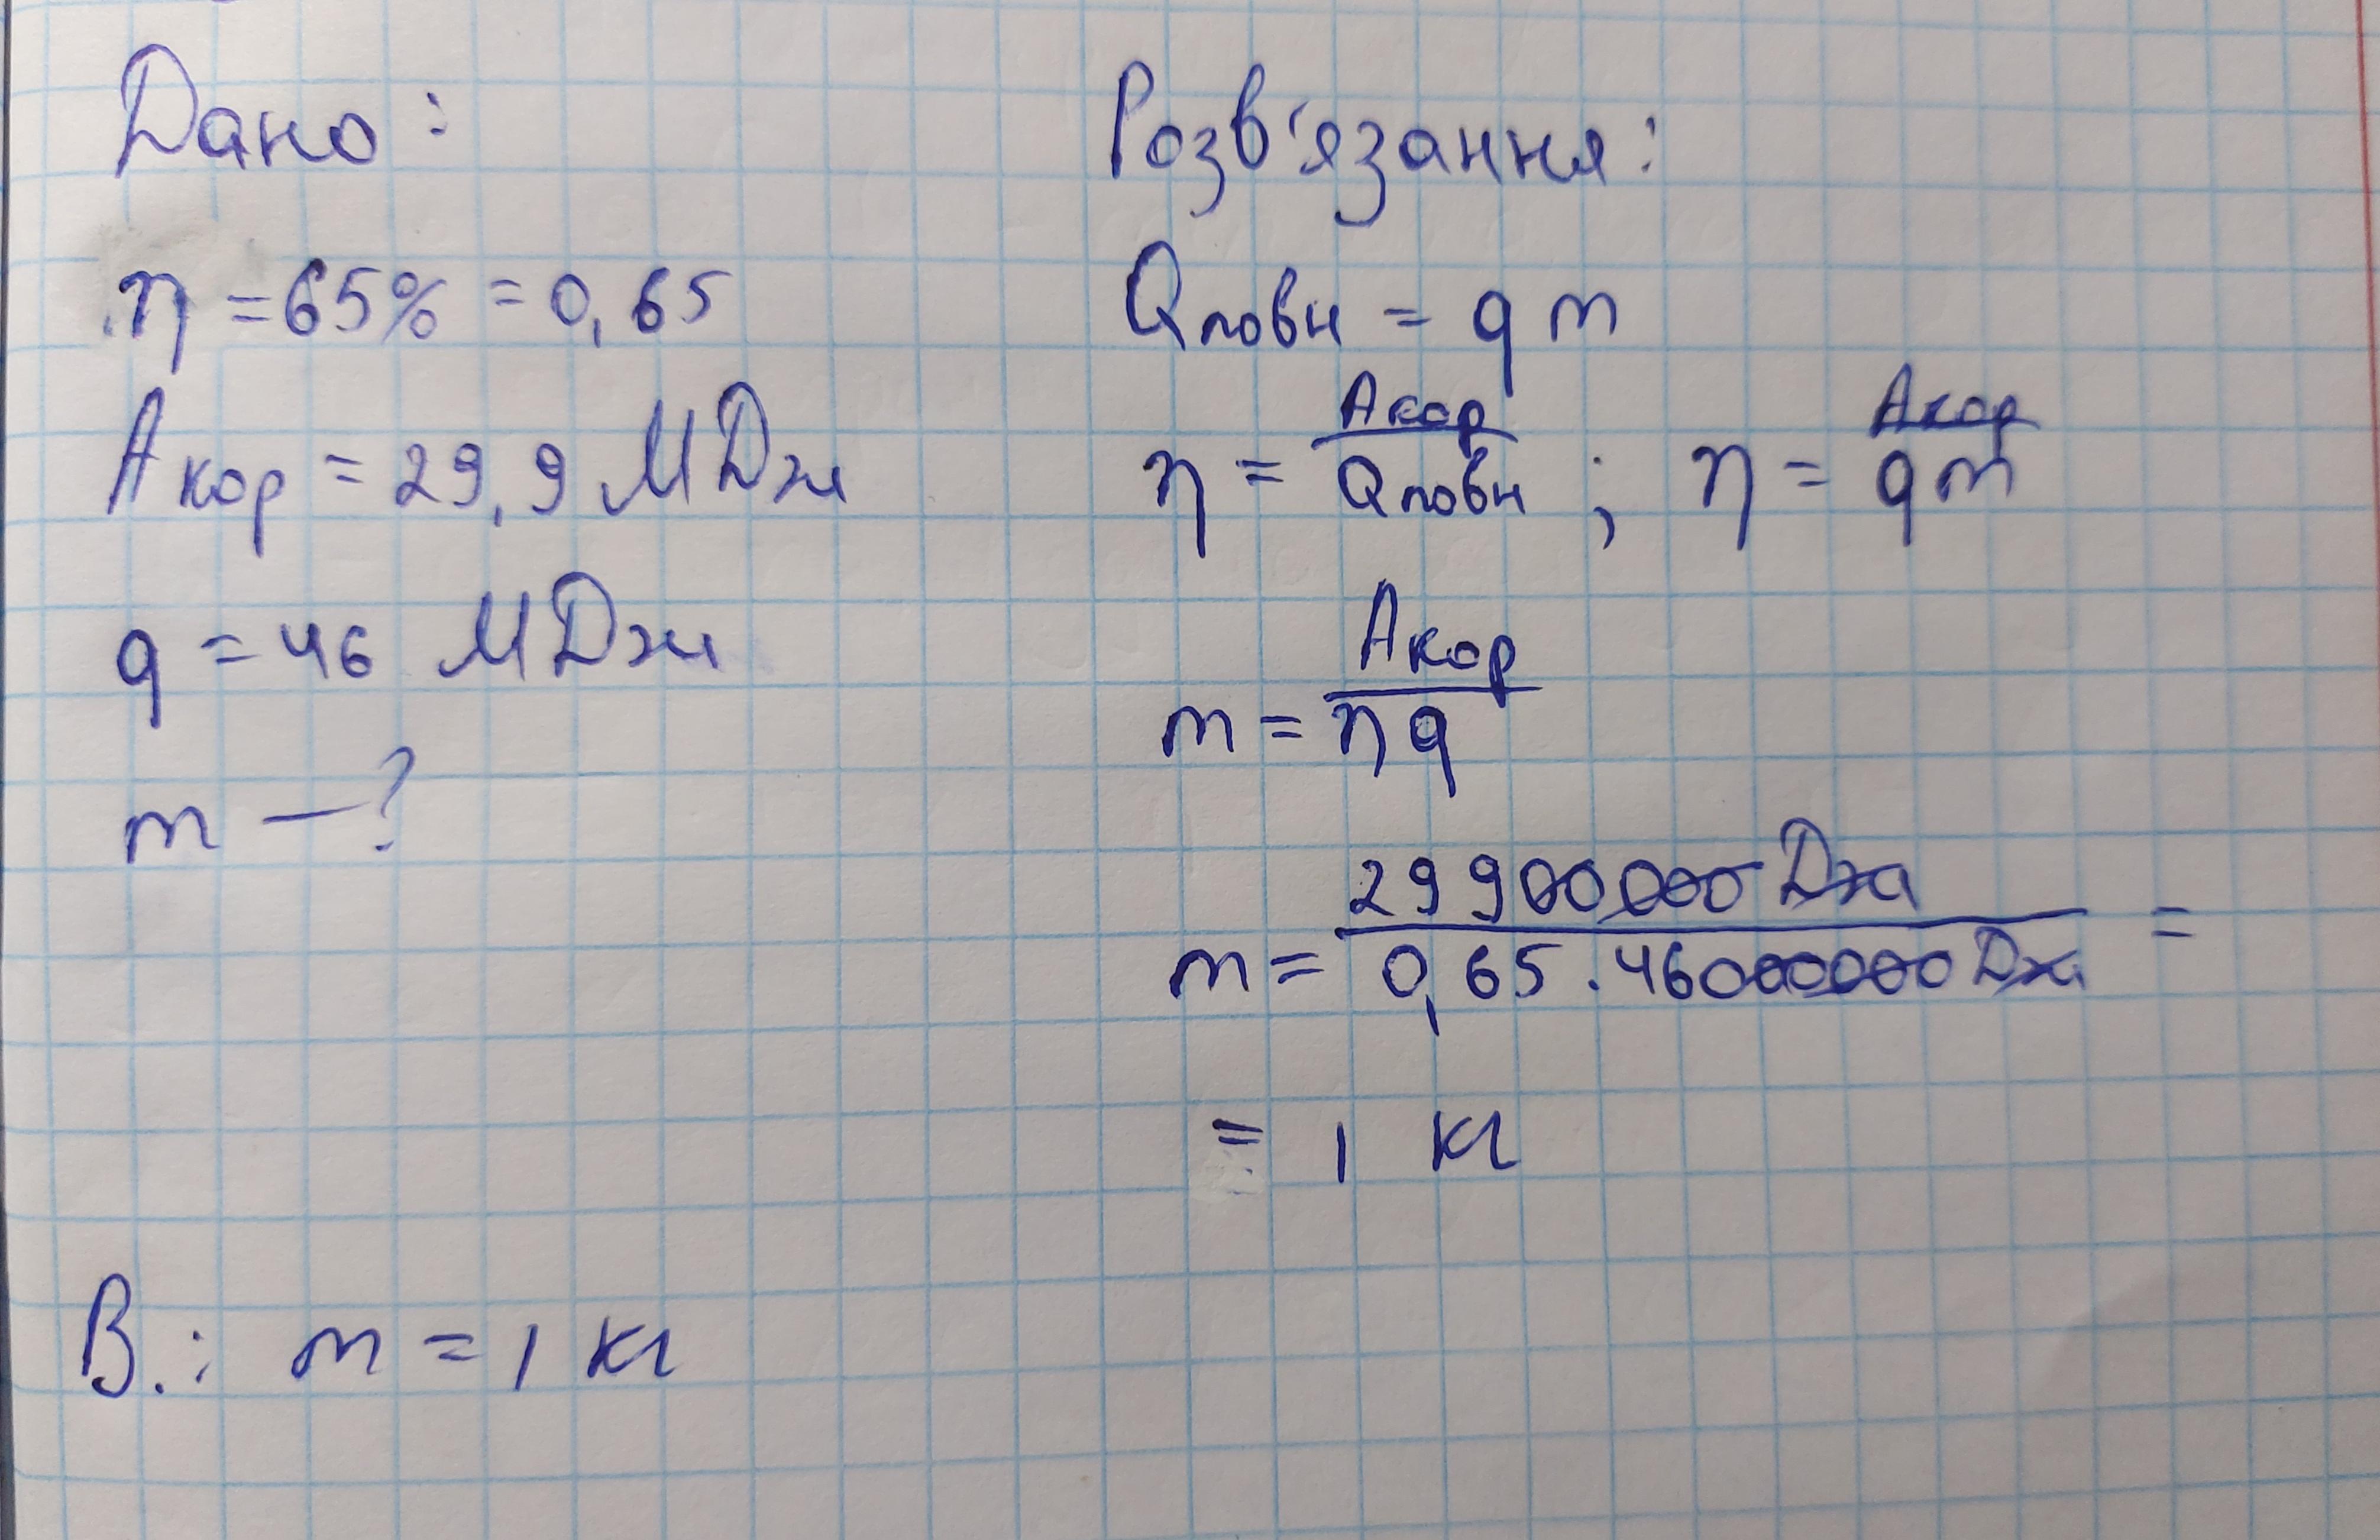 Дано:
η = 65% = 0,65
Aкор = 29,9 МДж
q = 46 МДж
m — ?
Розв'язання:
Qповн = qm
η = Aкор / Qповн ; η = Aкор / qm
m = Aкор / ηq
m = 29900000 Дж / 0,65 · 46000000 Дж =
= 1 кг
В.: m = 1 кг